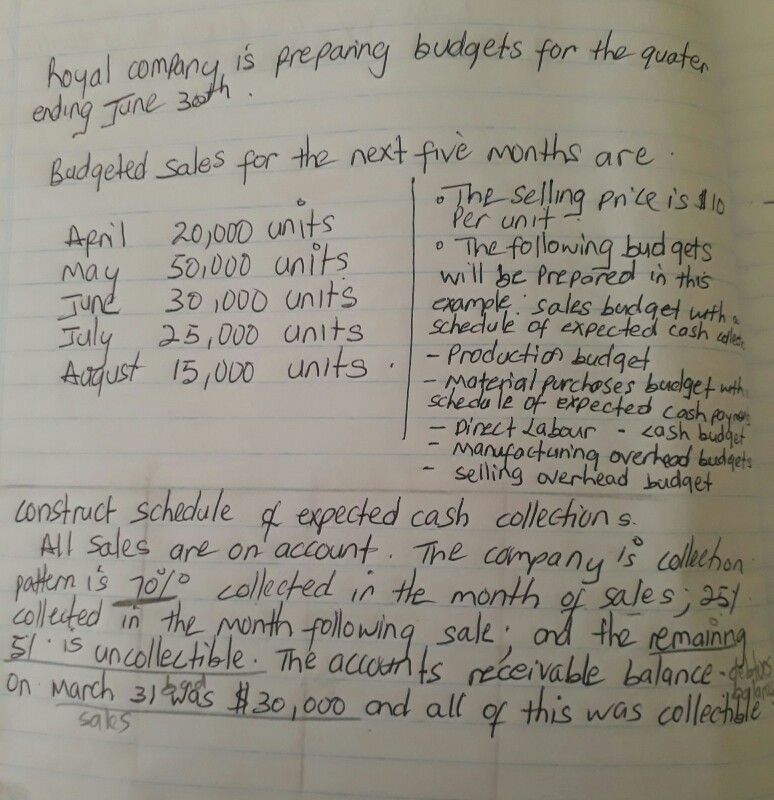 Royal company is preparing budgets for the quater
ending June 30th.
Budgeted sales for the next five months are.
April 20,000 units
May 50,000 units
June 30,000 units
July 25,000 units
August 15,000 units.
• The selling price is $10
Per unit -
• The following budgets
will be prepared in this
example: sales budget with a
schedule of expected cash
- Production budget
- Material purchases budget with
schedule of expected cash
- Direct Labour - cash budget
- Manufacturing overhead budgets
- selling overhead budget
construct schedule of expected cash collections.
All sales are on account. The company is collection
pattern is 70% collected in the month of sales; 25%
collected in the month following sale; and the remaining
5% is uncollectible. The accounts receivable balance - debtors
balance
On March 31 was $30,000 and all of this was collectible
sales